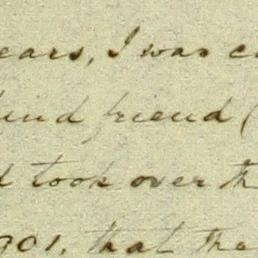 ears, I was c
kind friend (
d took over th
901, that the